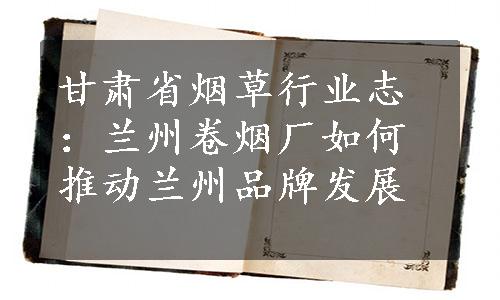 甘肃省烟草行业志
：兰州卷烟厂如何
推动兰州品牌发展